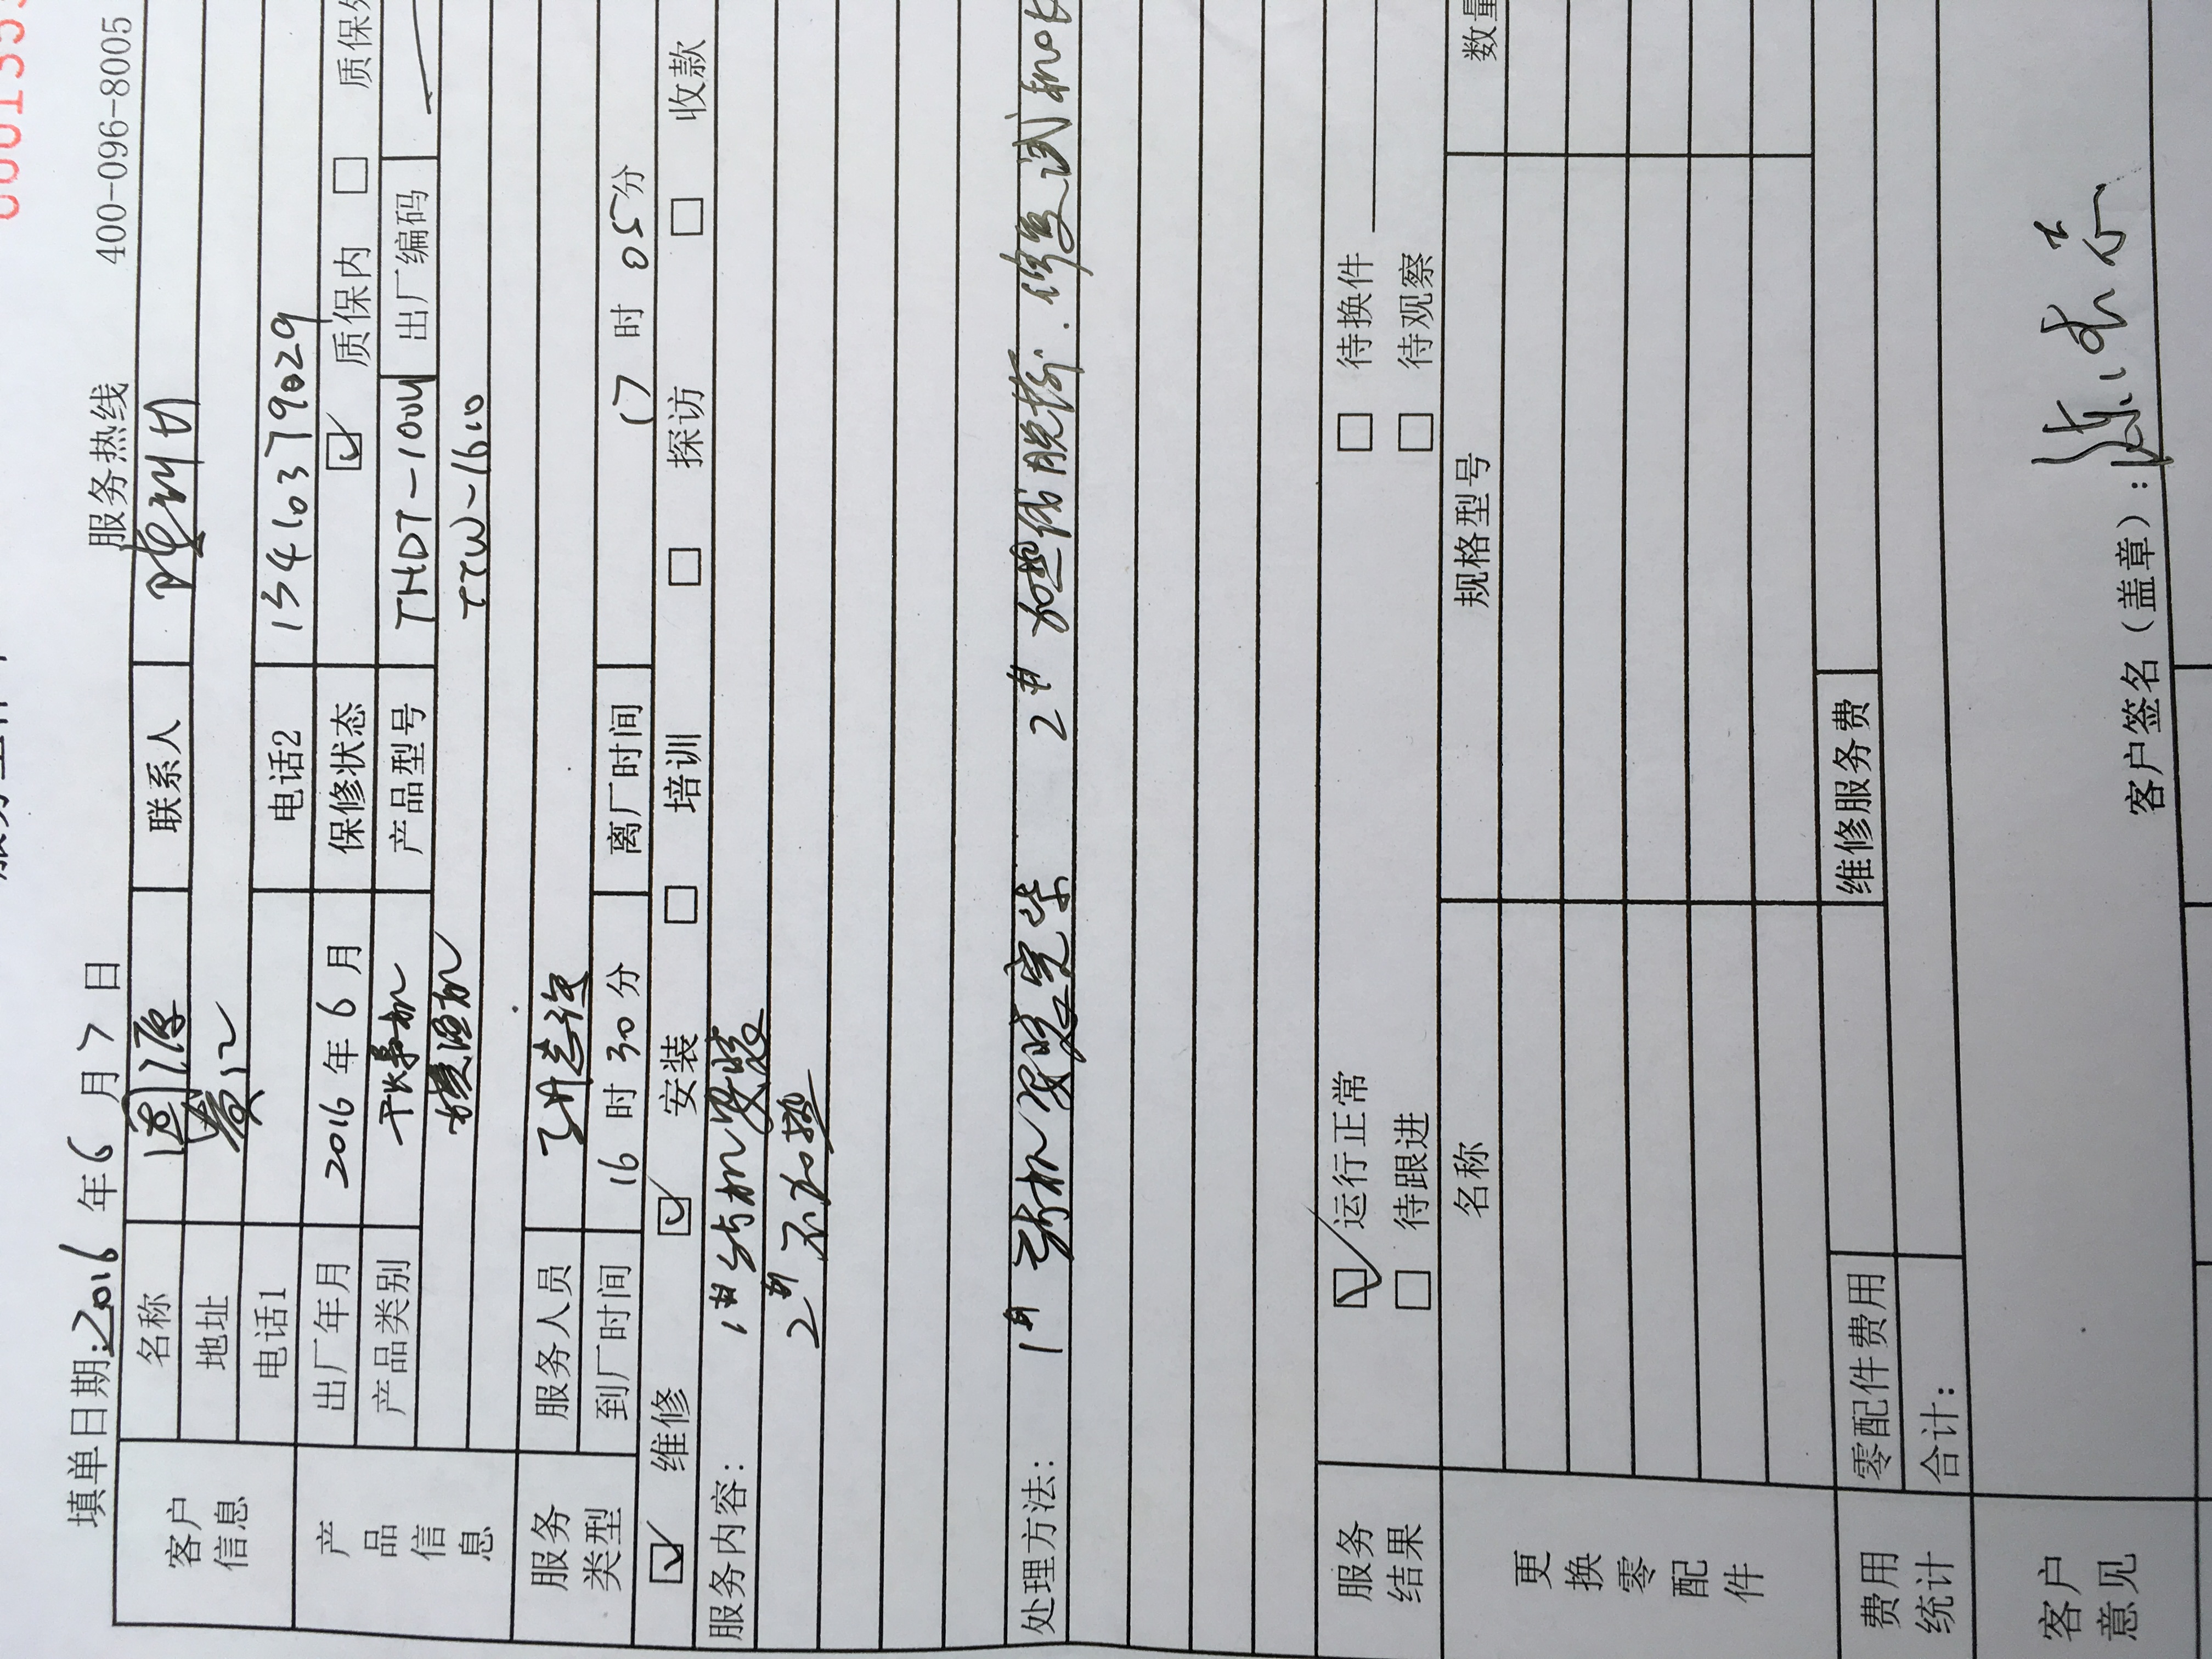 填单日期:2016年6月7日 服务热线 400-096-8005
客户信息 名称 联系人
地址 黄江
电话1 电话2 13410379029
产品信息 出厂年月 2016年6月 保修状态 ☑ 质保内 □ 质保外
产品类别 干燥机 产品型号 THDT-100U 出厂编码
模温机 TTW-1610
服务类型 服务人员
到厂时间 16时30分 离厂时间 17时05分
☑ 维修 ☑ 安装 □ 培训 □ 探访 □ 收款
服务内容: 1# 安装
2# 不加热
处理方法: 1# 新机安装完毕 2# 加热线脱落.修复试机ok
服务结果 ☑ 运行正常 □ 待换件
□ 待跟进 □ 待观察
更换零配件 名称 规格型号 数量
费用统计 零配件费用 维修服务费
合计:
客户意见
客户签名(盖章):